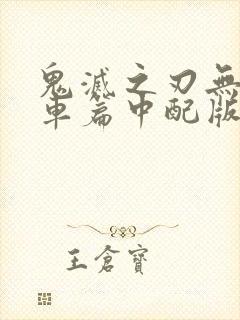 鬼滅之刃無
車篇中配版
王倉寶